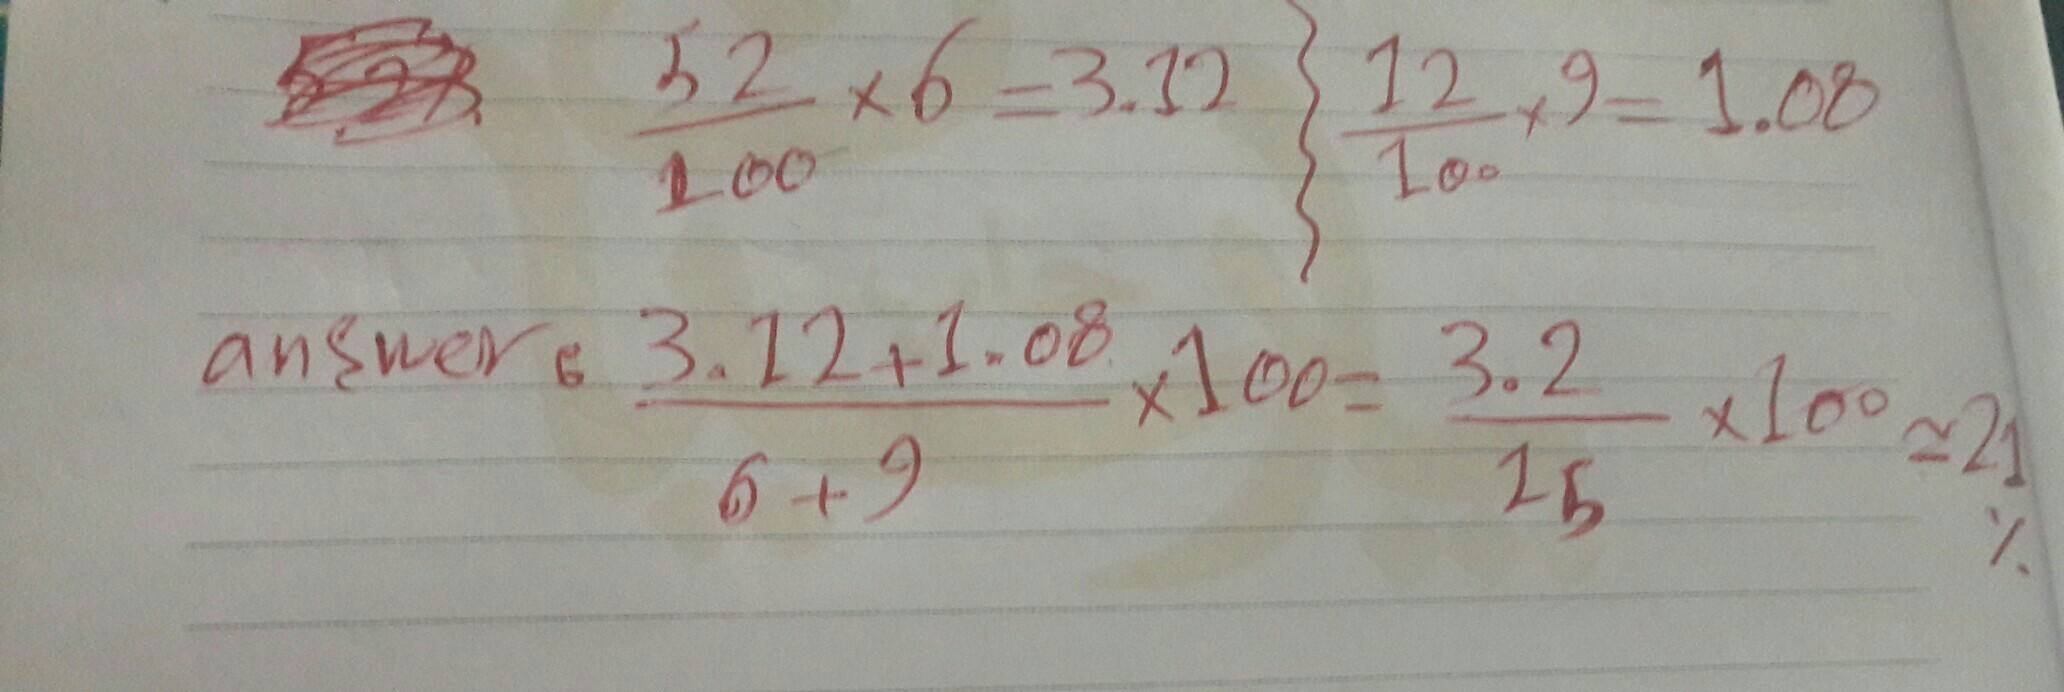 52/100 × 6 = 3.12 } 12/100 × 9 = 1.08
answer: (3.12+1.08)/(6+9) × 100 = 3.2/15 × 100 ≃ 21 %